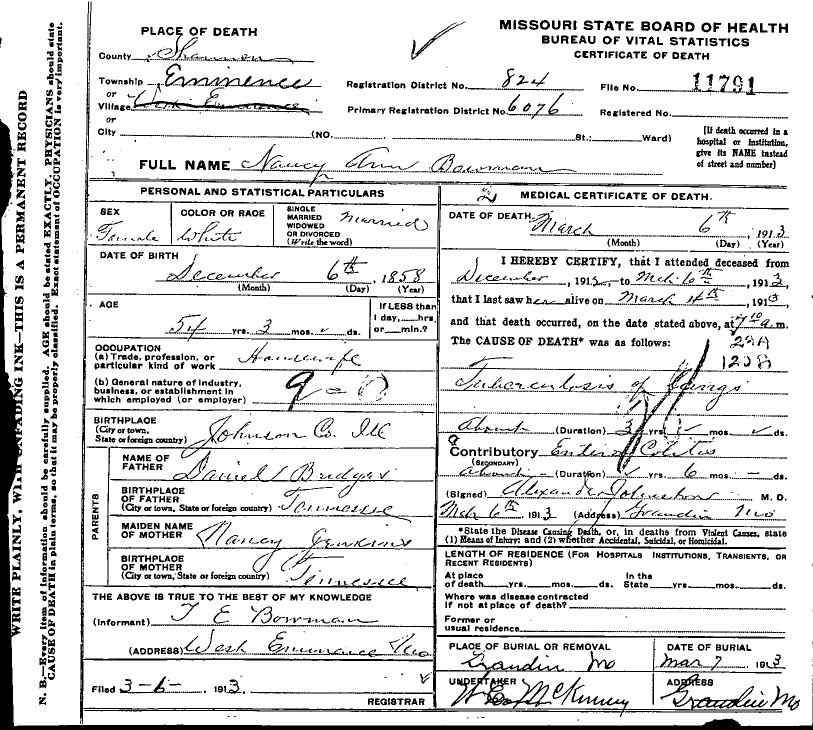 MISSOURI STATE BOARD OF HEALTH
BUREAU OF VITAL STATISTICS
CERTIFICATE OF DEATH
PLACE OF DEATH
County Shannon
Township Eminence
or
Village West Eminence
or
City (NO. St.; Ward)
Registration District No. 824
File No. 11791
Primary Registration District No. 6076
Registered No.
[If death occurred in a
hospital or institution,
give its NAME instead
of street and number]
FULL NAME Nancy Ann Bowman
PERSONAL AND STATISTICAL PARTICULARS
SEX
Female
COLOR OR RACE
White
SINGLE
MARRIED
WIDOWED
OR DIVORCED
(Write the word)
Married
DATE OF BIRTH
December 6th, 1858
(Month) (Day) (Year)
AGE
54 yrs. 3 mos. ds.
If LESS than
1 day, hrs.
or min.?
OCCUPATION
(a) Trade, profession, or
particular kind of work Housewife
(b) General nature of industry,
business, or establishment in
which employed (or employer)
9 = 0
BIRTHPLACE
(City or town,
State or foreign country) Johnson Co. Ill
PARENTS
NAME OF
FATHER Daniel Bridges
BIRTHPLACE
OF FATHER
(City or town, State or foreign country) Tennessee
MAIDEN NAME
OF MOTHER Nancy Jenkins
BIRTHPLACE
OF MOTHER
(City or town, State or foreign country) Tennessee
THE ABOVE IS TRUE TO THE BEST OF MY KNOWLEDGE
(Informant) T E Bowman
(ADDRESS) West Eminence Mo
Filed 3-6- 1913.
REGISTRAR
2 MEDICAL CERTIFICATE OF DEATH.
DATE OF DEATH March 6th 1913
(Month) (Day) (Year)
I HEREBY CERTIFY, that I attended deceased from
December, 1912, to Mch. 6th, 1913
that I last saw her alive on March 4th, 1913
and that death occurred, on the date stated above, at 7 10 a.m.
The CAUSE OF DEATH* was as follows: 28A
120B
Tuberculosis of Lungs
about (Duration) 3 yrs. mos. ds.
Contributory Entero Colitis
(SECONDARY)
about (Duration) yrs. 6 mos. ds.
(Signed) Alexander Johnston M. D.
Mch 6th, 1913 (Address) Grandin Mo
*State the Disease Causing Death, or, in deaths from Violent Causes, state
(1) Means of Injury; and (2) whether Accidental, Suicidal, or Homicidal.
LENGTH OF RESIDENCE (FOR HOSPITALS INSTITUTIONS, TRANSIENTS, OR
RECENT RESIDENTS)
At place
of death yrs. mos. ds.
In the
State yrs. mos. ds.
Where was disease contracted
if not at place of death?
Former or
usual residence
PLACE OF BURIAL OR REMOVAL
Grandin Mo
DATE OF BURIAL
Mar 7 1913
UNDERTAKER
McKinney
ADDRESS
Grandin Mo
WRITE PLAINLY, WITH UNFADING INK—THIS IS A PERMANENT RECORD
N. B.—Every item of information should be carefully supplied. AGE should be stated EXACTLY. PHYSICIANS should state
CAUSE OF DEATH in plain terms, so that it may be properly classified. Exact statement of OCCUPATION is very important.